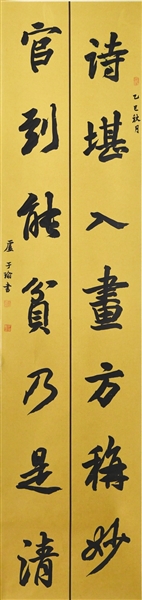 乙巳秋月
诗堪入畫方稱妙
官到能貧乃是清
盧子瑜書